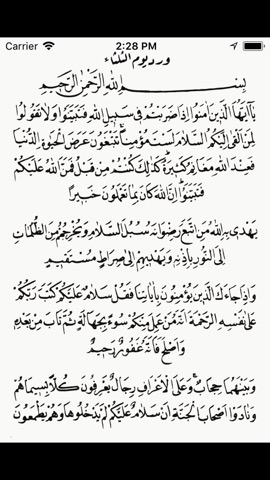 Carrier 2:28 PM
ورد يوم الثلثاء
بسم الله الرحمن الرحيم
يَا أَيُّهَا الَّذِينَ آمَنُوا إِذَا ضَرَبْتُمْ فِي سَبِيلِ اللهِ فَتَبَيَّنُوا وَلَا تَقُولُوا
لِمَنْ أَلْقَى إِلَيْكُمُ السَّلَامَ لَسْتَ مُؤْمِنًا تَبْتَغُونَ عَرَضَ الْحَيٰوةِ الدُّنْيَا
فَعِنْدَ اللهِ مَغَانِمُ كَثِيرَةٌ كَذٰلِكَ كُنْتُمْ مِنْ قَبْلُ فَمَنَّ اللهُ عَلَيْكُمْ
فَتَبَيَّنُوا إِنَّ اللهَ كَانَ بِمَا تَعْمَلُونَ خَبِيرًا
يَهْدِي بِهِ اللهُ مَنِ اتَّبَعَ رِضْوَانَهُ سُبُلَ السَّلَامِ وَيُخْرِجُهُمْ مِنَ الظُّلُمَاتِ
إِلَى النُّورِ بِإِذْنِهِ وَيَهْدِيهِمْ إِلَى صِرَاطٍ مُسْتَقِيمٍ
وَإِذَا جَاءَكَ الَّذِينَ يُؤْمِنُونَ بِآيَاتِنَا فَقُلْ سَلَامٌ عَلَيْكُمْ كَتَبَ رَبُّكُمْ
عَلَى نَفْسِهِ الرَّحْمَةَ أَنَّهُ مَنْ عَمِلَ مِنْكُمْ سُوءًا بِجَهَالَةٍ ثُمَّ تَابَ مِنْ بَعْدِهِ
وَأَصْلَحَ فَأَنَّهُ غَفُورٌ رَحِيمٌ
وَبَيْنَهُمَا حِجَابٌ وَعَلَى الْأَعْرَافِ رِجَالٌ يَعْرِفُونَ كُلًّا بِسِيمَاهُمْ
وَنَادَوْا أَصْحَابَ الْجَنَّةِ أَنْ سَلَامٌ عَلَيْكُمْ لَمْ يَدْخُلُوهَا وَهُمْ يَطْمَعُونَ